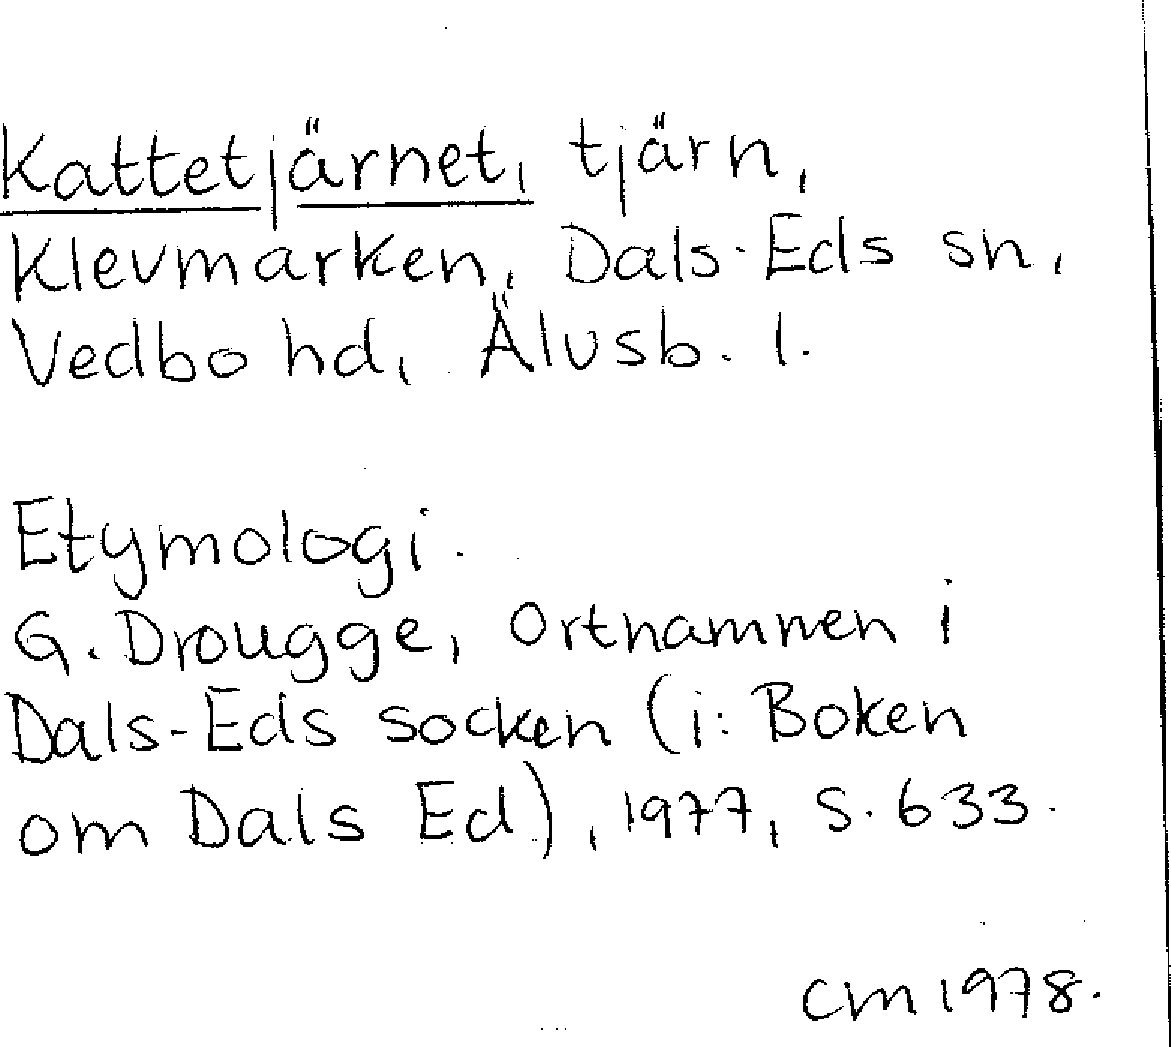 Kattetjärnet, tjärn,
Klevmarken, Dals-Eds sn,
Vedbo hd, Älvsb. l.
Etymologi.
G. Drougge, Ortnamnen i
Dals-Eds socken (i: Boken
om Dals Ed), 1977, s. 633.
CM 1978.